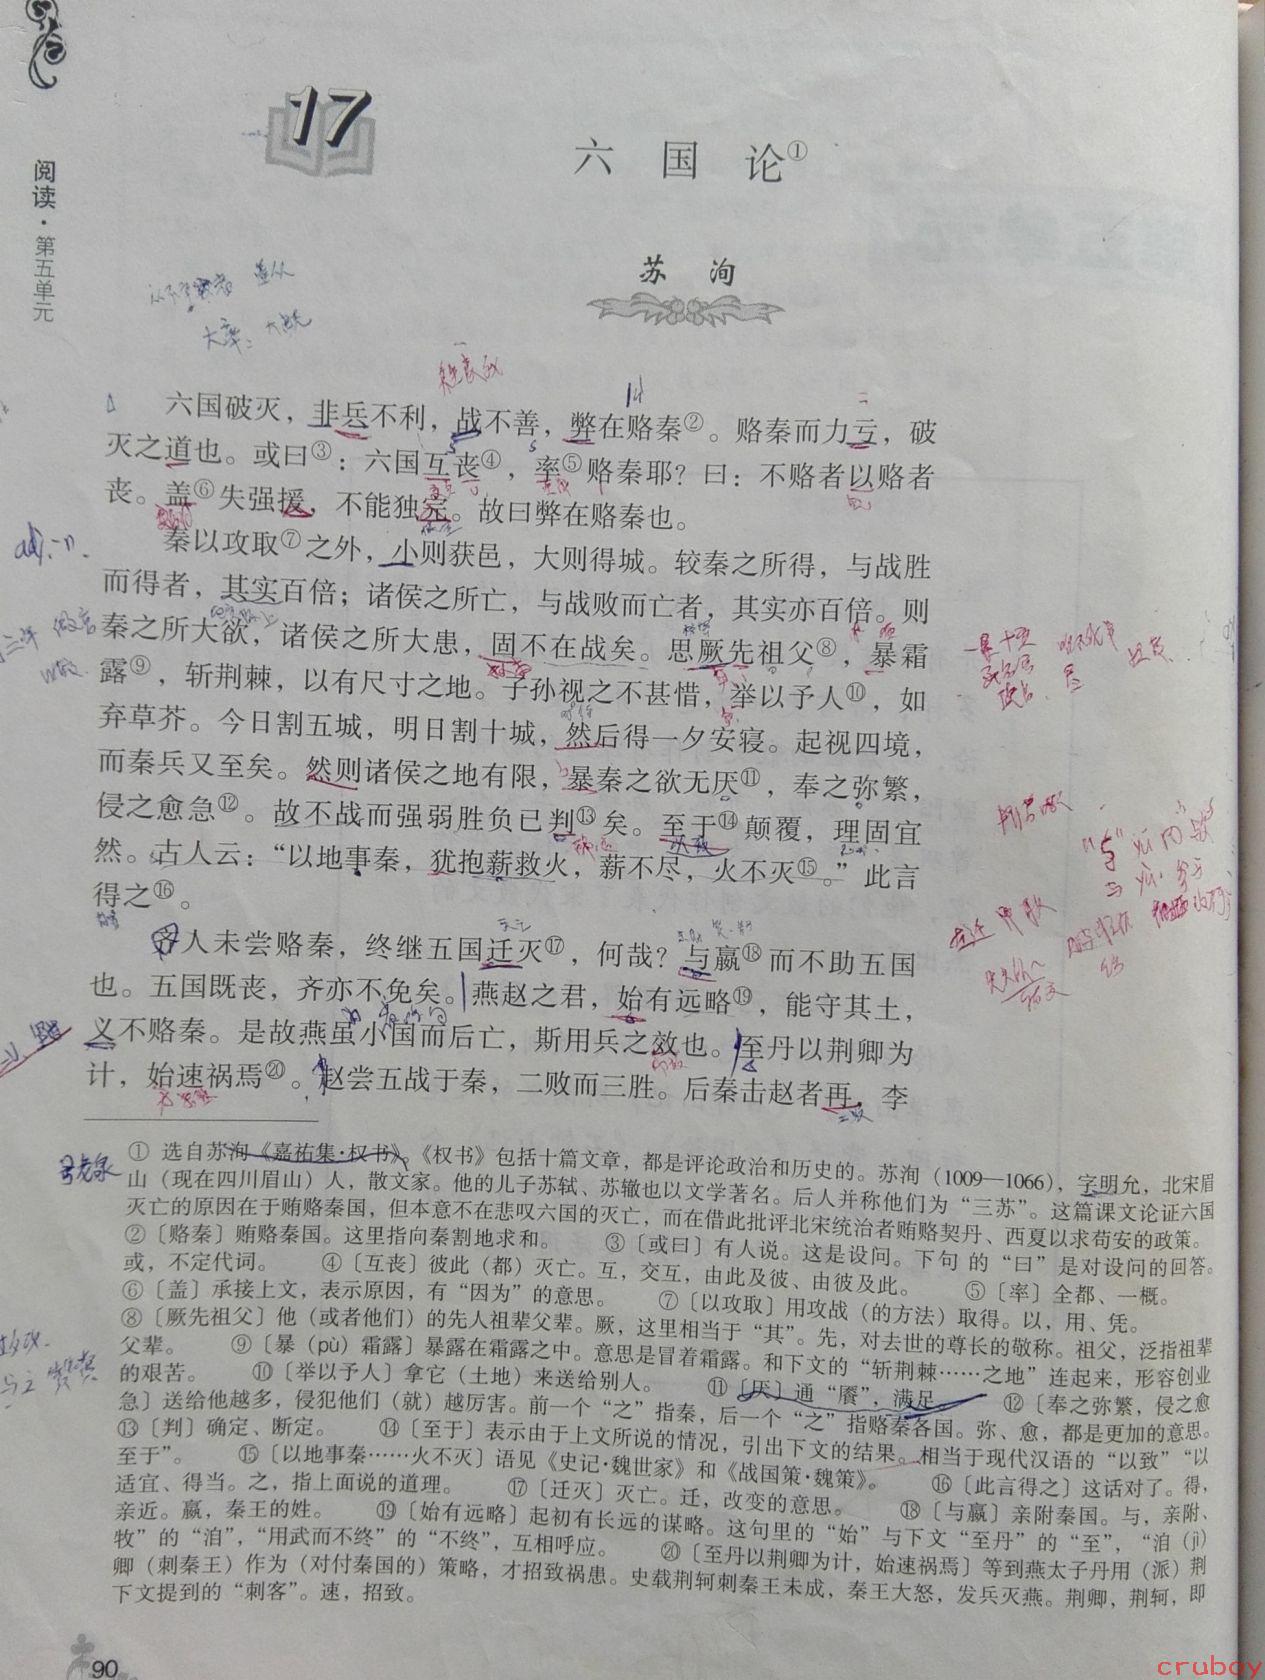 17
六国论①
阅读·第五单元
苏洵
大率:大概
六国破灭，非兵不利，战不善，弊在赂秦②。赂秦而力亏，破
灭之道也。或曰③：六国互丧④，率⑤赂秦耶？曰：不赂者以赂者
丧。盖⑥失强援，不能独完。故曰弊在赂秦也。
秦以攻取⑦之外，小则获邑，大则得城。较秦之所得，与战胜
而得者，其实百倍；诸侯之所亡，与战败而亡者，其实亦百倍。则
秦之所大欲，诸侯之所大患，固不在战矣。思厥先祖父⑧，暴霜
露⑨，斩荆棘，以有尺寸之地。子孙视之不甚惜，举以予人⑩，如
弃草芥。今日割五城，明日割十城，然后得一夕安寝。起视四境，
而秦兵又至矣。然则诸侯之地有限，暴秦之欲无厌⑪，奉之弥繁，
侵之愈急⑫。故不战而强弱胜负已判⑬矣。至于⑭颠覆，理固宜
然。古人云：“以地事秦，犹抱薪救火，薪不尽，火不灭⑮。”此言
得之⑯。
齐人未尝赂秦，终继五国迁灭⑰，何哉？与嬴⑱而不助五国
也。五国既丧，齐亦不免矣。燕赵之君，始有远略⑲，能守其土，
义不赂秦。是故燕虽小国而后亡，斯用兵之效也。至丹以荆卿为
计，始速祸焉⑳。赵尝五战于秦，二败而三胜。后秦击赵者再，李
① 选自苏洵《嘉祐集·权书》。《权书》包括十篇文章，都是评论政治和历史的。苏洵（1009—1066），字明允，北宋眉
山（现在四川眉山）人，散文家。他的儿子苏轼、苏辙也以文学著名。后人并称他们为“三苏”。这篇课文论证六国
灭亡的原因在于贿赂秦国，但本意不在悲叹六国的灭亡，而在借此批评北宋统治者贿赂契丹、西夏以求苟安的政策。
②〔赂秦〕贿赂秦国。这里指向秦割地求和。 ③〔或曰〕有人说。这是设问。下句的“曰”是对设问的回答。
或，不定代词。 ④〔互丧〕彼此（都）灭亡。互，交互，由此及彼、由彼及此。 ⑤〔率〕全都、一概。
⑥〔盖〕承接上文，表示原因，有“因为”的意思。 ⑦〔以攻取〕用攻战（的方法）取得。以，用、凭。
⑧〔厥先祖父〕他（或者他们）的先人祖辈父辈。厥，这里相当于“其”。先，对去世的尊长的敬称。祖父，泛指祖辈
父辈。 ⑨〔暴（pù）霜露〕暴露在霜露之中。意思是冒着霜露。和下文的“斩荆棘……之地”连起来，形容创业
的艰苦。 ⑩〔举以予人〕拿它（土地）来送给别人。 ⑪〔厌〕通“餍”，满足。 ⑫〔奉之弥繁，侵之愈
急〕送给他越多，侵犯他们（就）越厉害。前一个“之”指秦，后一个“之”指赂秦各国。弥、愈，都是更加的意思。
⑬〔判〕确定、断定。 ⑭〔至于〕表示由于上文所说的情况，引出下文的结果。相当于现代汉语的“以致”“以
至于”。 ⑮〔以地事秦……火不灭〕语见《史记·魏世家》和《战国策·魏策》。 ⑯〔此言得之〕这话对了。得，
适宜、得当。之，指上面说的道理。 ⑰〔迁灭〕灭亡。迁，改变的意思。 ⑱〔与嬴〕亲附秦国。与，亲附、
亲近。嬴，秦王的姓。 ⑲〔始有远略〕起初有长远的谋略。这句里的“始”与下文“至丹”的“至”，“洎（jì）
牧”的“洎”，“用武而不终”的“不终”，互相呼应。 ⑳〔至丹以荆卿为计，始速祸焉〕等到燕太子丹用（派）荆
卿（刺秦王）作为（对付秦国的）策略，才招致祸患。史载荆轲刺秦王未成，秦王大怒，发兵灭燕。荆卿，荆轲，即
下文提到的“刺客”。速，招致。
90
cruboy